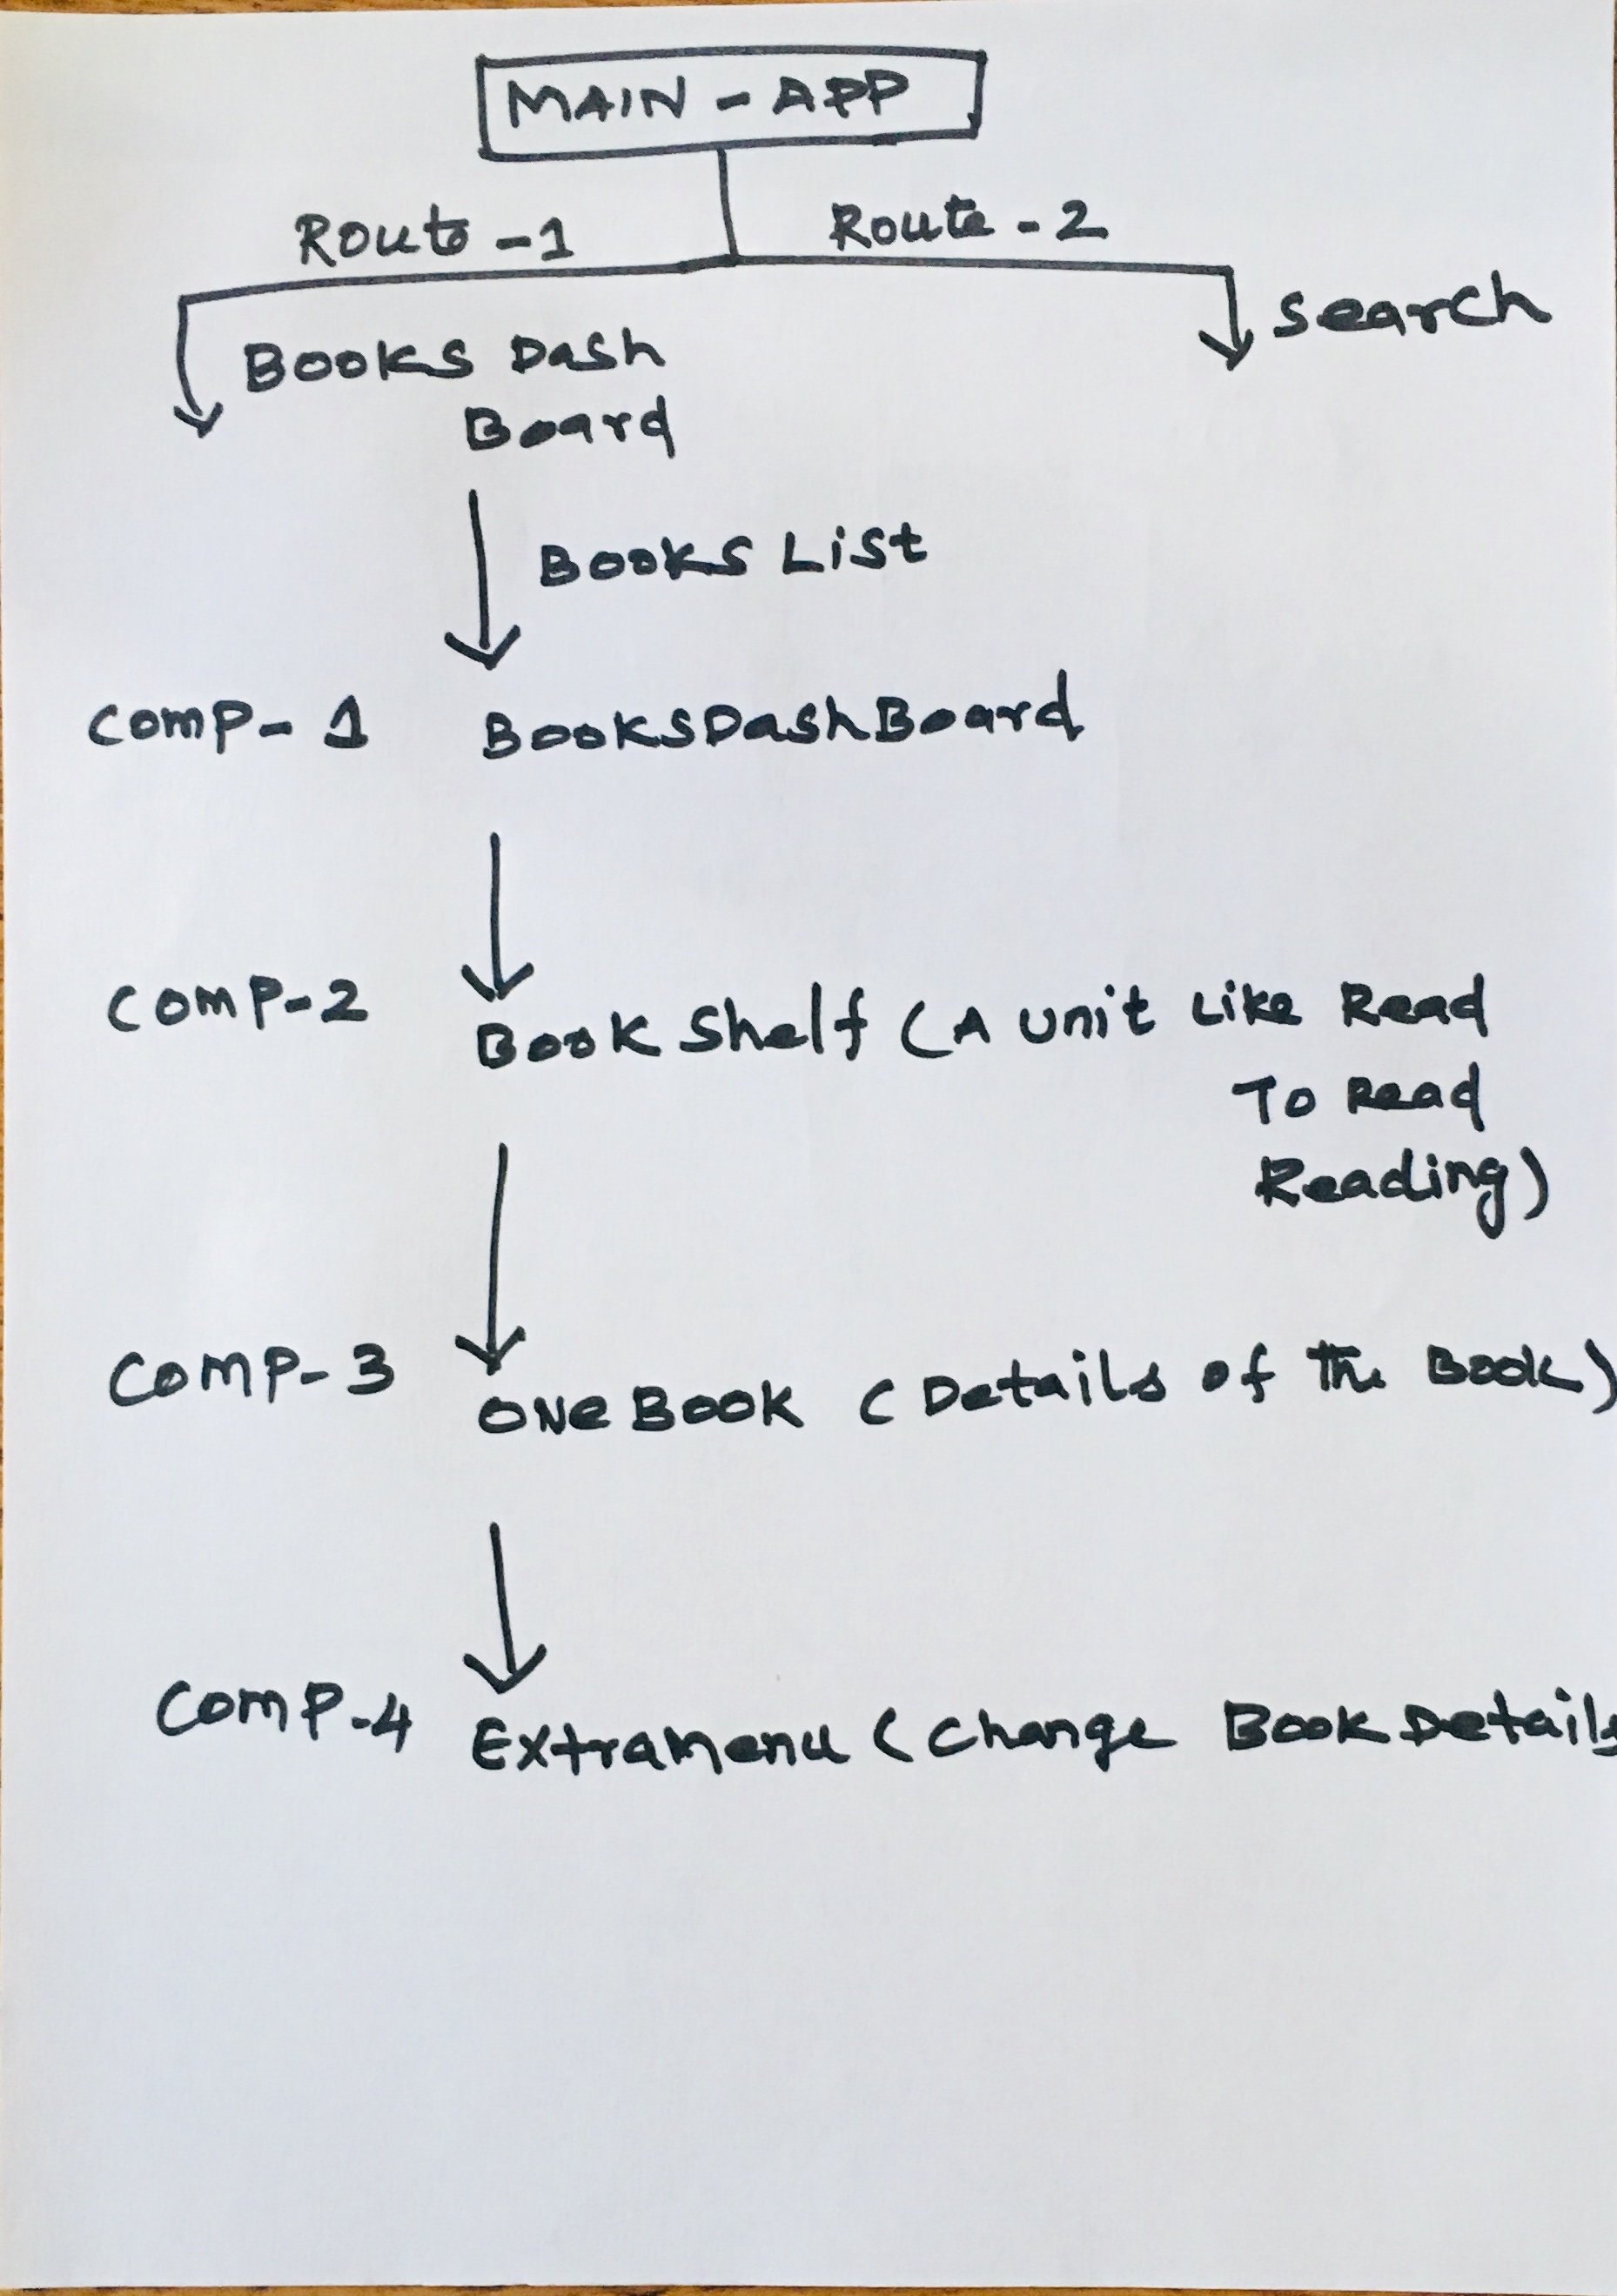 MAIN - APP
Route - 1
Route - 2
Search
Books Dash
Board
Books List
Comp- 1 BooksDashBoard
Comp-2 Book Shelf (A unit Like Read
To Read
Reading)
Comp-3 One Book (Details of the Book)
Comp-4 Extramenu (change Book Details